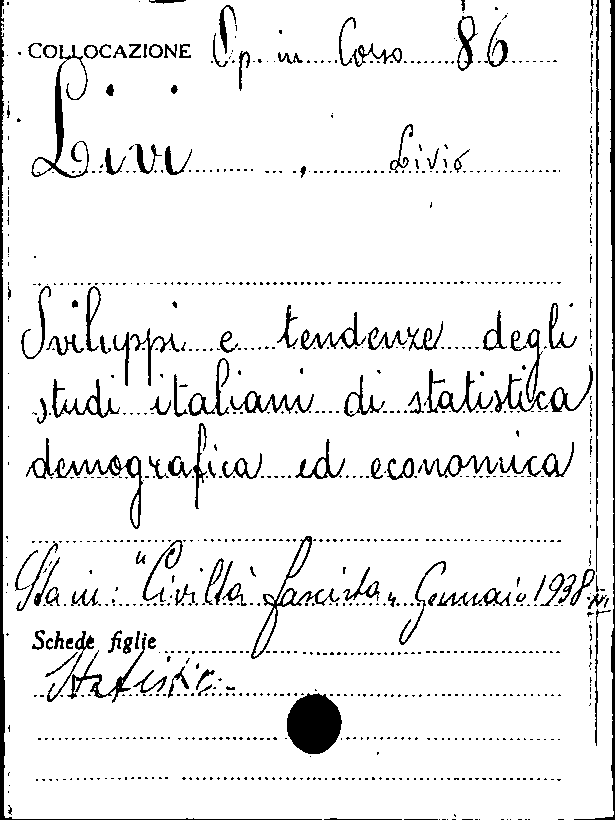 COLLOCAZIONE Op. in Corso 86
Livi , Livio
Sviluppi e tendenze degli
studi italiani di statistica
demografica ed economica
Sta in: "Civiltà fascista" Gennaio 1938. XVI
Schede figlie
Statistica